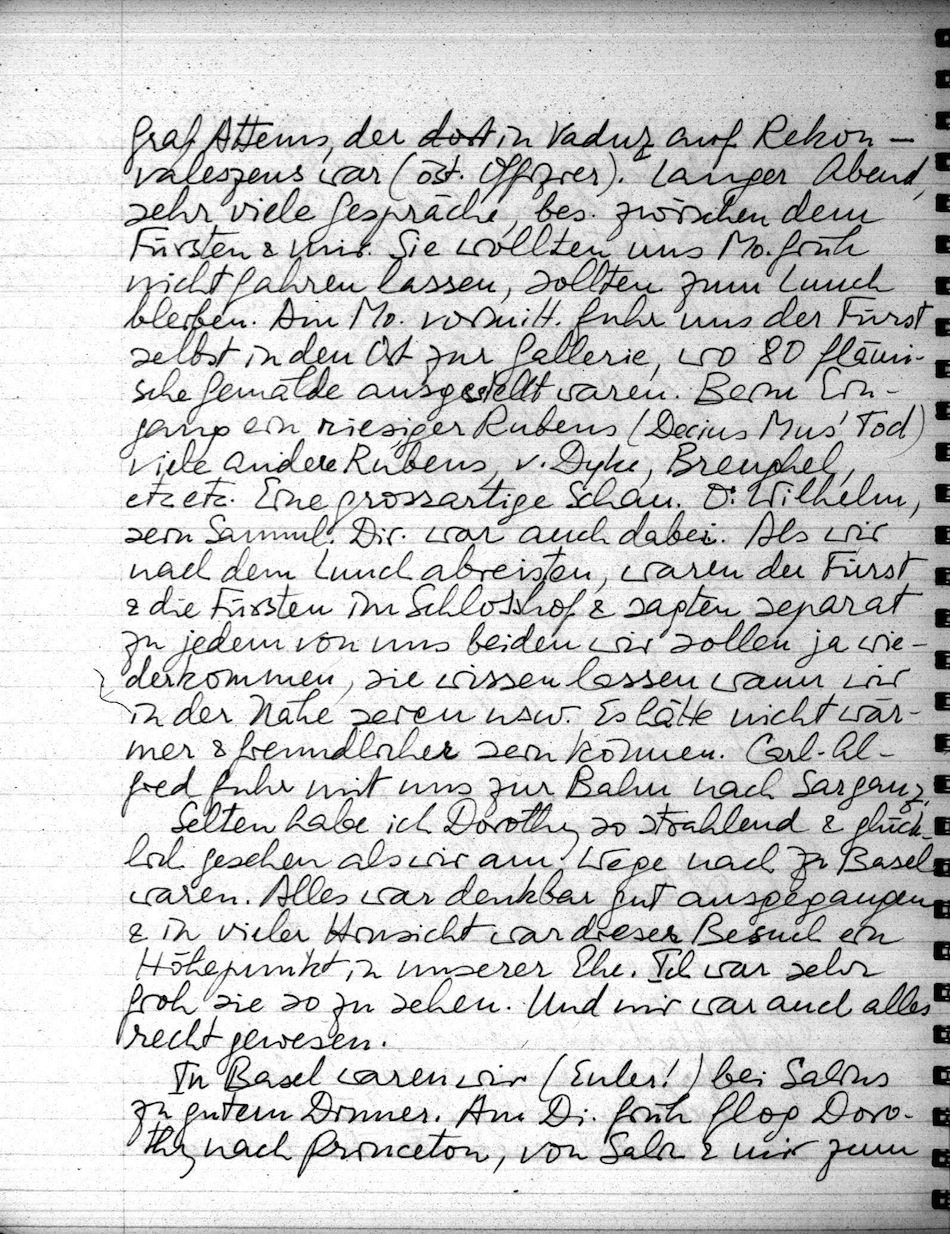 Graf Attems, der dort in Vaduz auf Rekon-
valeszens war (öst. Offizier). Langer Abend,
sehr viele Gespräche, bes. zwischen dem
Fürsten & mir. Sie wollten uns Mo. früh
nicht fahren lassen, sollten zum Lunch
bleiben. Am Mo. vormitt. fuhr uns der Fürst
selbst in den Ort zur Gallerie, wo 80 flämi-
sche Gemälde ausgestellt waren. Beim Ein-
gang ein riesiger Rubens (Decius Mus' Tod)
viele andere Rubens, v. Dyke, Breughel,
etc etc. Eine grossartige Schau. D. Wilhelm,
sein Samml. Dir. war auch dabei. Als wir
nach dem Lunch abreisten, waren der Fürst
& die Fürsten im Schlosshof & sagten separat
zu jedem von uns beiden wir sollen ja wie-
derkommen, sie wissen lassen wann wir
in der Nähe seien usw. Es hätte nicht wär-
mer & freundlicher sein können. Carl-Al-
fred fuhr mit uns zur Bahn nach Sarganz.
Selten habe ich Dorothy so strahlend & glück-
lich gesehen als wir am Wege nach zu Basel
waren. Alles war denkbar gut ausgegangen
& in vieler Hinsicht war dieser Besuch ein
Höhepunkt in unserer Ehe. Ich war sehr
froh sie so zu sehen. Und mir war auch alles
recht gewesen.
In Basel waren wir (Euler!) bei Salins
zu gutem Dinner. Am Di. früh flog Doro-
thy nach Princeton, von Salin & mir zum